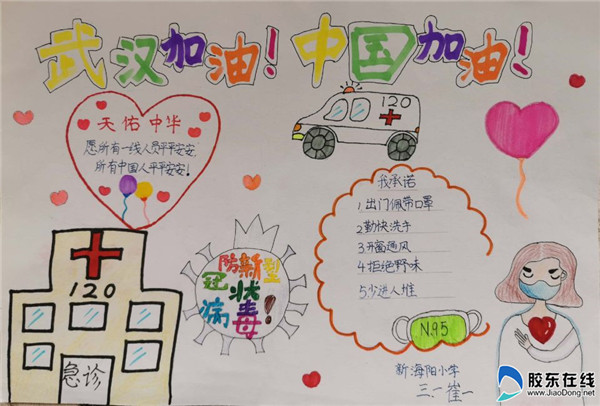 武汉加油！中国加油！
天佑中华
愿所有一线人员平平安安，
所有中国人平平安安！
120
我承诺
1.出门佩带口罩
2勤快洗手
3.开窗通风
4拒绝野味
5少进人堆
N95
防新型
冠状
病毒！
120
急诊
新海阳小学
三·一 崔一
胶东在线
www.JiaoDong.net